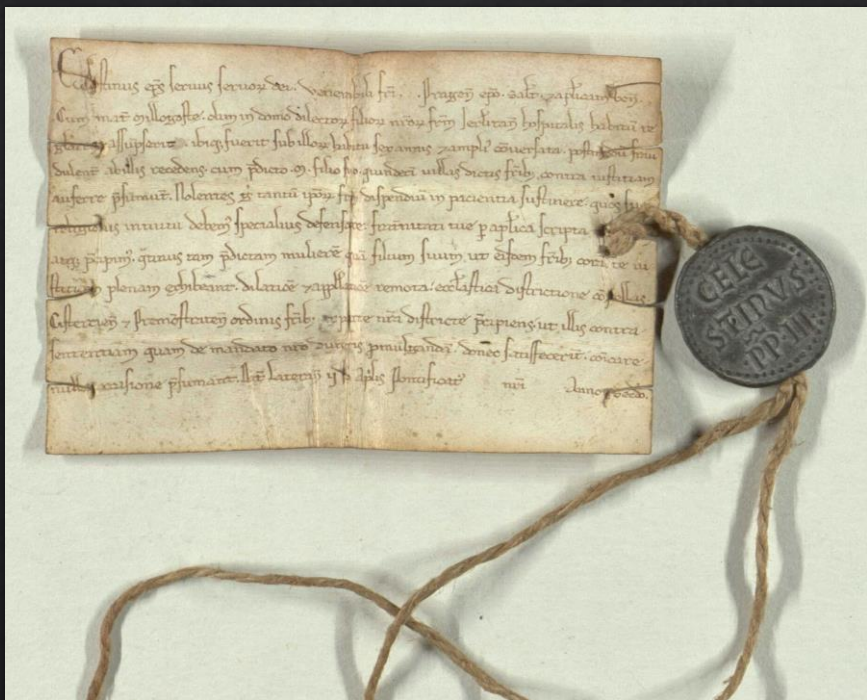 Celestinus eps servus servoꝝ dei. venerabili fri . . Pragen̄ epo. saƚt ⁊ aplicam ben̄.
Cum mat̄ millogoste. olim in domo dilectoꝝ filioꝝ nr̄oꝝ fr̄m Ierlitan̄ hospitalis habitū re
assūpserit. ibiqꝫ fuerit sub illoꝝ habitu sex annis ⁊ ampli᷒ cōversata. postmodū frau
dulent̄ ab illis recedens. cum p̄dicto .m. filio suo. quasdā villas dictis fr̄ibꝫ contra iustitiam
auferre p̄sumūt. Nolentes gͦ tantū ipoꝝ fr̄m dispendiū in paciencia sustinere. quos
religionis intuitu debem᷒ specialius defensare: fr̄nitati tue ꝑ aplica scripta
atqꝫ p̄cipim᷒. qͣtinus tam p̄dictam mulierē qͣ filium suum. ut eisdem fr̄ibꝫ corā te iu
stitiam plenam exhibeant. dilatiōe ⁊ appellatiōe remota. eccl̄astica districtione cōpellas
Cistertien̄ ⁊ Premōstraten̄ ordinis fr̄ibꝫ ex parte nr̄a districte p̄cipiens. ut illis contra
sententiam quam de mandato nr̄o duxeris ꝓmulgandā. donec satisfecerit. cōicare
nulla ratione p̄sumant. Dat̄ Lateran̄ ij kƚ Aplis Pontificat᷒ nr̄i Anno
CELE
STINVS
PP · III